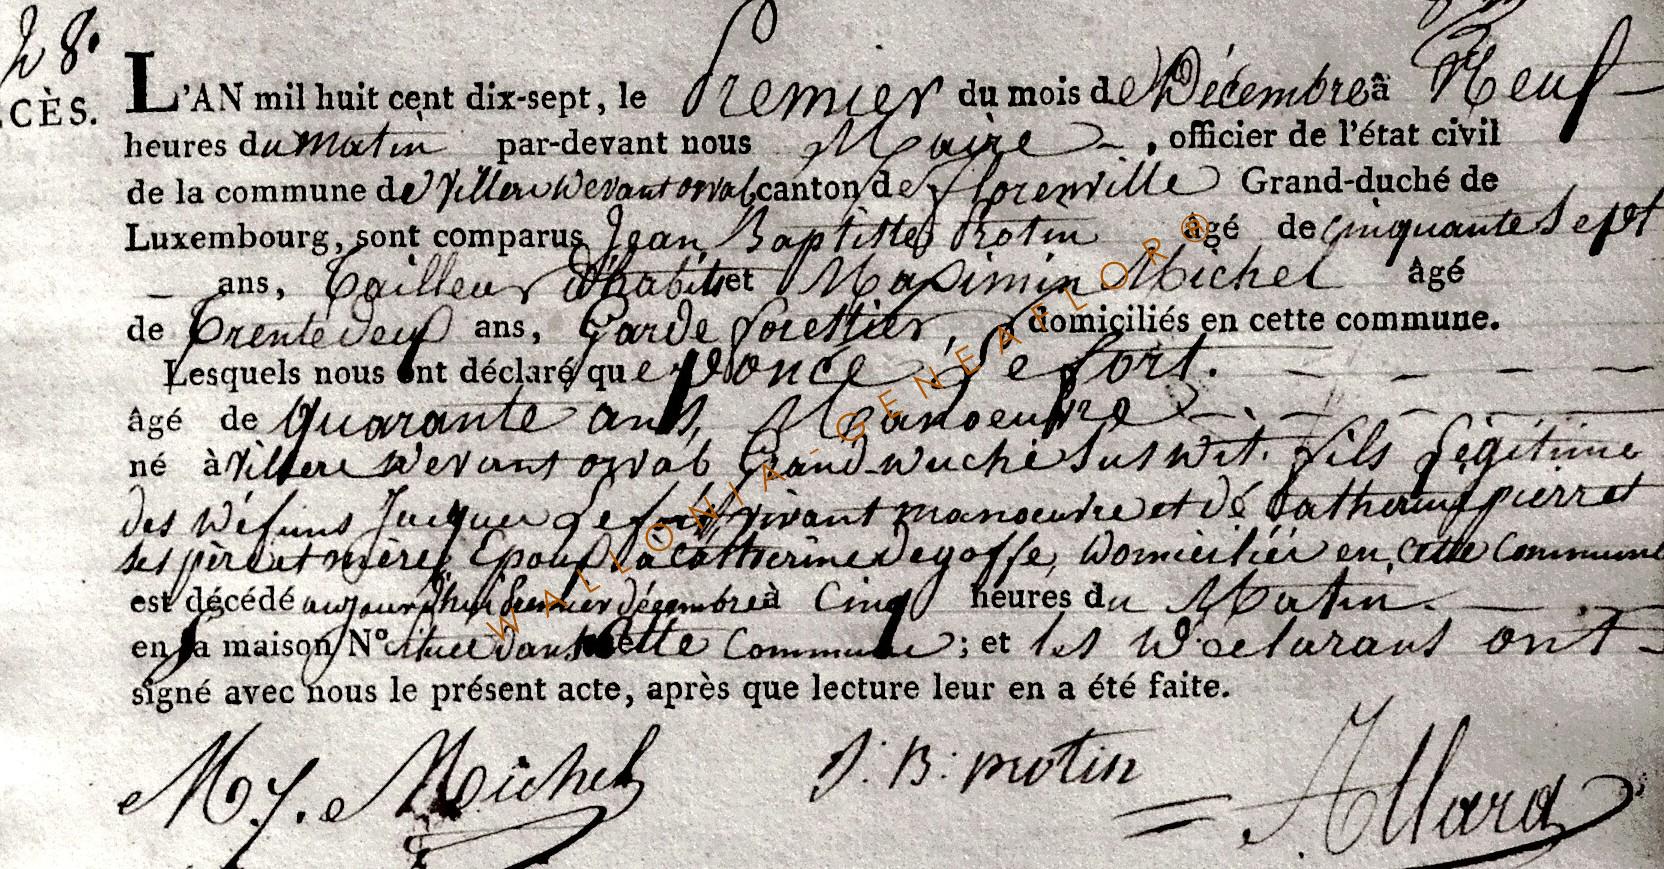 28.
CÈS.
L'AN mil huit cent dix-sept, le Premier du mois de Décembre à Neuf
heures du matin par-devant nous Maire , officier de l'état civil
de la commune de Villers devant orval canton de florenville Grand-duché de
Luxembourg, sont comparus Jean Baptiste Protin âgé de cinquante Sept
ans, Tailleur D'habits et Maximin Michel âgé
de Trente deux ans, Garde forestier, domiciliés en cette commune.
Lesquels nous ont déclaré que Ponce Lefort.
âgé de quarante ans, Manoeuvre
né à Villers devant orval Grand duché susdit. fils légitime
des défunts Jacques Lefort vivant manoeuvre et de Catherine pierret
ses père et mère, Epoux à catherine Degoffe, domiciliée en cette Commune
est décédé aujourd'hui premier décembre à Cinq heures du Matin.
en sa maison N° située dans cette Commune ; et les Déclarans ont
signé avec nous le présent acte, après que lecture leur en a été faite.
M. J. Michel J: B: protin Allard
WALLONIA-GENEAFLOR®